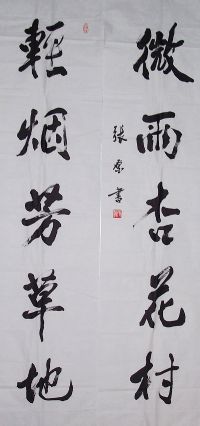 微雨杏花村
輕烟芳草地
張原書